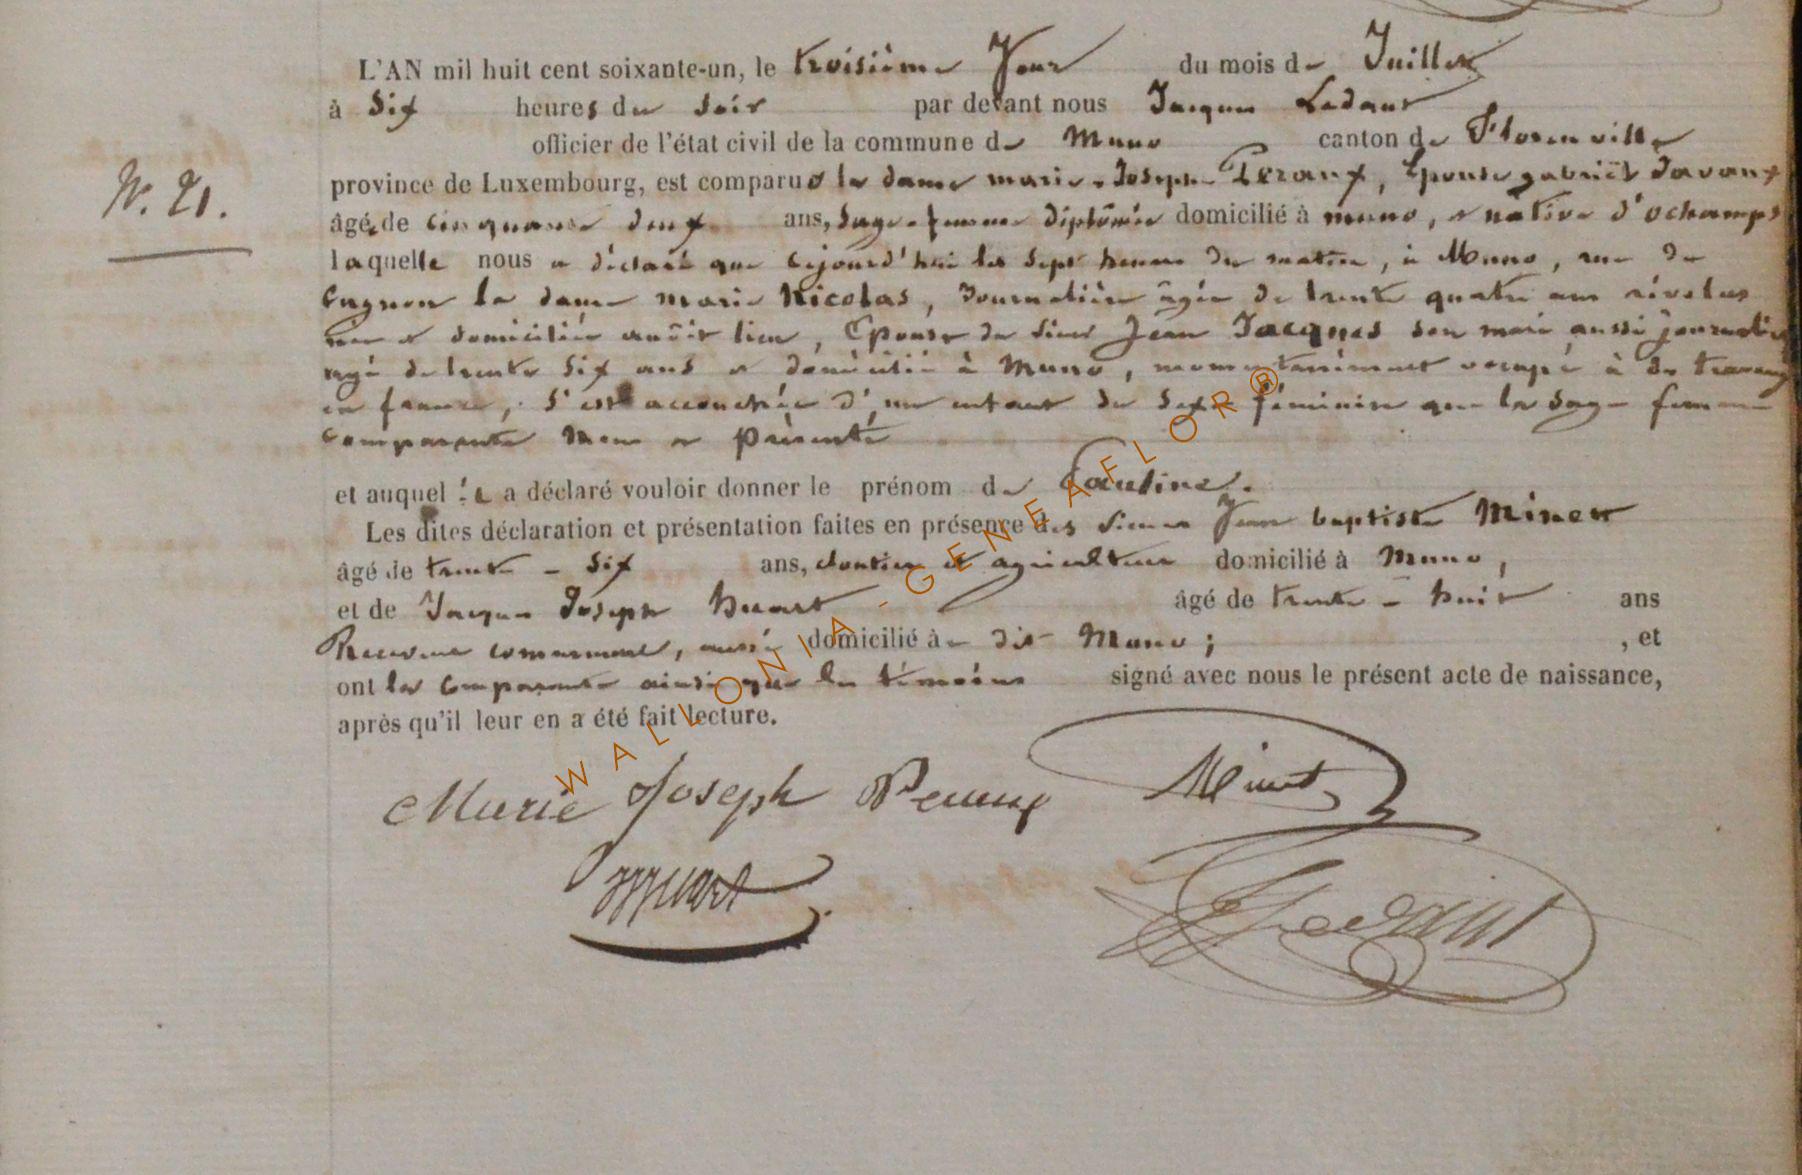 L'AN mil huit cent soixante-un, le troisième Jour du mois de Juillet
à Six heures du Soir par devant nous Jacques Ledant
officier de l'état civil de la commune de Muno canton de Florenville
province de Luxembourg, est comparue la dame marie-Joseph Peraux, Epouse gabriël Davaux
N. 21.
âgée de cinquante deux ans, Sage-femme diplômée domicilié à muno, et native d'ochamps
laquelle nous a déclaré que cejourd'hui les Sept heures du matin, à Muno, rue de
Cugnon la dame marie Nicolas, Journalière âgée de trente quatre ans révolus
née et domiciliée audit lieu, Epouse du Sieur Jean Jacques son mari aussi journalier
agé de trente Six ans et domicilié à Muno, momentanément occupé à des travaux
en france, s'est accouchée d'un enfant du Sexe féminin que la Sage femme
Comparante Nous a présenté
et auquel le a déclaré vouloir donner le prénom de Pauline.
Les dites déclaration et présentation faites en présence des Sieurs Jean baptiste Minet
âgé de trente-Six ans, et agriculteur domicilié à Muno,
et de Jacques Joseph huart âgé de trente-huit ans
Receveur communal, aussi domicilié à dit Muno; , et
ont la Comparante ainsi que les témoins signé avec nous le présent acte de naissance,
après qu'il leur en a été fait lecture.
Marie Joseph Peraux Minet
JJHuart
Ledant
WALLONIA-GENEAFLOR®